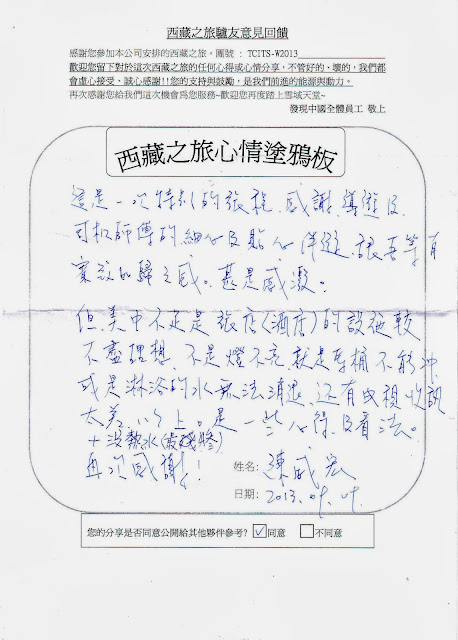 西藏之旅驢友意見回饋
感謝您參加本公司安排的西藏之旅。團號：TCITS-W2013
歡迎您留下對於這次西藏之旅的任何心得或心情分享，不管好的、壞的，我們都
會虛心接受、誠心感謝!!您的支持與鼓勵，是我們前進的能源與動力。
再次感謝您給我們這次機會為您服務~歡迎您再度踏上雪域天堂~
發現中國全體員工 敬上
西藏之旅心情塗鴉板
這是一次特別的旅程，感謝導遊及
司机師傅的細心及貼心伴遊，讓吾等有
賓致如歸之感。甚是感激。
但，美中不足是旅店(酒店)的設施較
不盡理想，不是燈不亮，就是馬桶不能沖，
或是淋浴的水無法消退，還有電視收訊
太差，以上。是一些心得及看法。
＋沒熱水
再次感謝！
姓名：陳威宏
日期：2013.
您的分享是否同意公開給其他夥伴參考? ☑同意 □不同意